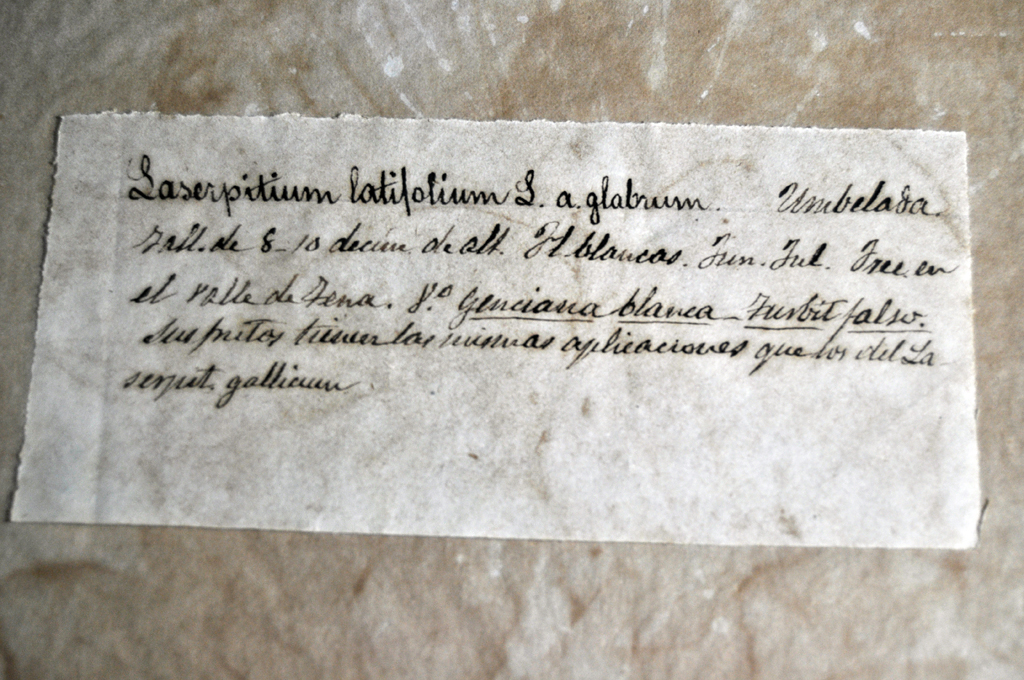 Laserpitium latifolium L. a. glabrum. Umbelada.
Tall. de 8-10 decim. de alt. Fl blancas. Jun. Jul. Frec. en
el valle de Tena. V.º Genciana blanca - Turbit falso.
Sus frutos tienen las mismas aplicaciones que los del La-
serpit. gallicum.